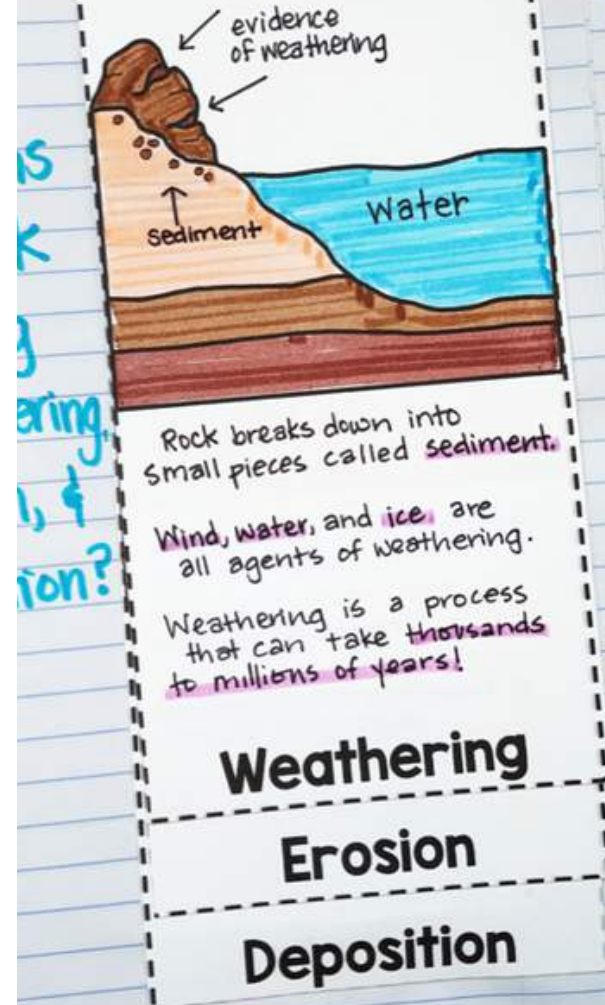 evidence
of weathering
sediment
Water
Rock breaks down into
small pieces called sediment.
Wind, water, and ice are
all agents of weathering.
Weathering is a process
that can take thousands
to millions of years!
Weathering
Erosion
Deposition